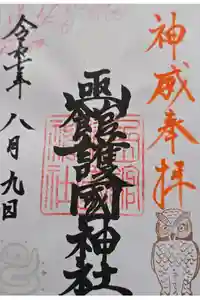 神威奉拝
凾館護國神社
令和年八月九日